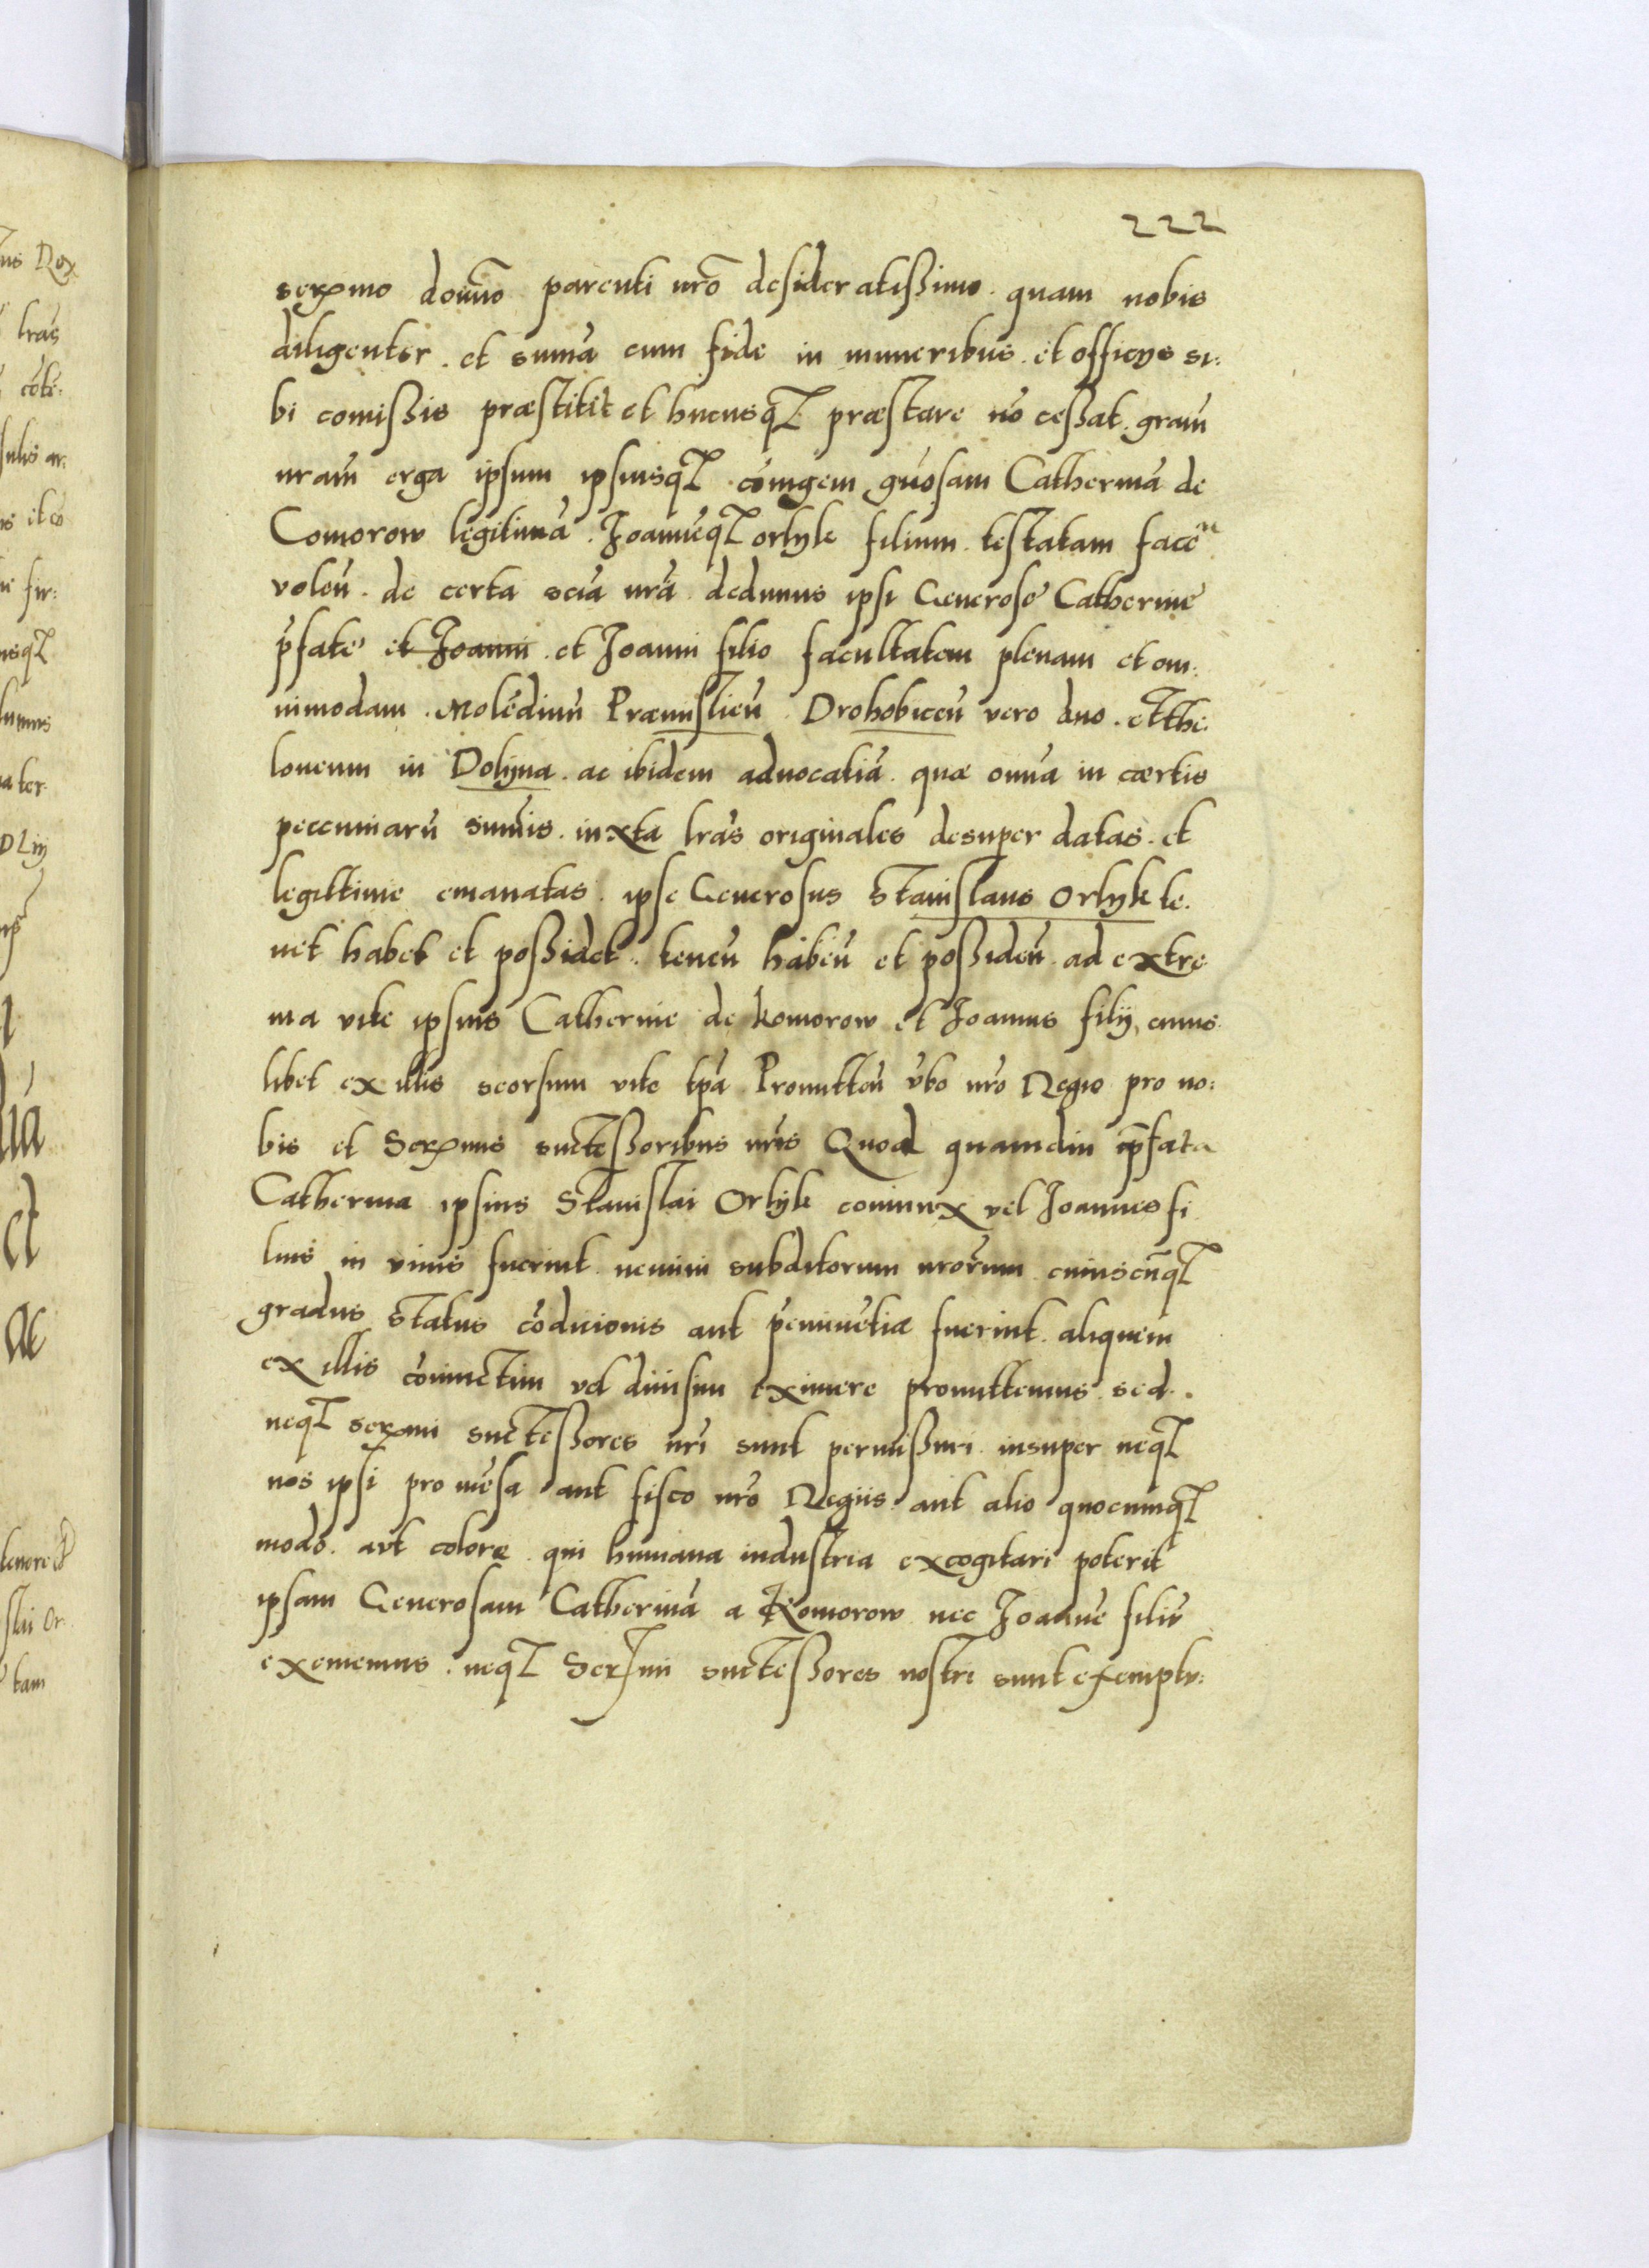 222
serx̃mo dom̃no parenti nr̃o desideratissimo . quam nobis
diligenter . et sum̃a cum fide in muneribus . et officys si:
bi com̃issis præstitit et hucusq præstare nõ cessat . gram̃
nram̃ erga ipsum ipsiusq cõiugem gñosam Catherinã de
Comorow legitimã . Joannẽq orlyk filium . testatam facẽ
voleñ . de certa sciã nrã dedimus ipsi Generose Catherine
p̃fate et Joanni . et Joanni filio facultatem plenam et om:
nimodam . Molẽdinũ Præmislieñ . Drohobiceñ vero duo . et the:
loneum in Dolyna . ac ibidem aduocatiã . quæ om̃ia in cærtis
peccuniarũ sum̃is . iuxta lr̃as originales desuper datas . et
legittime emanatas . ipse Generosus Stanislaus Orlyk te:
net habet et possidet . teneñ habeñ et possideñ . ad extre
ma vite ipsius Catherine de Komorow et Joannis filij cuius
libet ex illis seorsum vite tp̃a Promitteñ ṽbo nr̃o Regio pro no:
bis et Serx̃mis successoribus nr̃is Quod quamdiu p̃fata
Catherina ipsius Stanislai Orlyk coniunx vel Joannes fi
lius in viuis fuerint . nemini subditorum nrõrum cuiuscũq
gradus status cõdicionis aut p̃eminẽtiæ fuerint . aliquem
ex illis cõiunctim vel diuisim eximere promittemus . sed .
neq serx̃mi successores nr̃i sunt permissuri . insuper neq
nos ipsi pro mẽsa aut fisco nr̃o Regiis aut alio quocumq
modo . aut colore . qui humana industria excogitari poterit
ipsam Generosam Catherinã a Komorow nec Joannẽ filiũ
exememus . neq Serx̃mi successores nostri sunt exemptu: